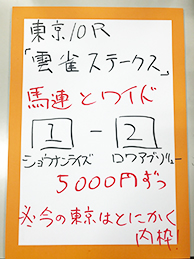 東京10R
「雲雀ステークス」
馬連とワイド
1 - 2
ショウナンライズ ロワアブソリュー
5000円ずつ
※今の東京はとにかく
内枠!